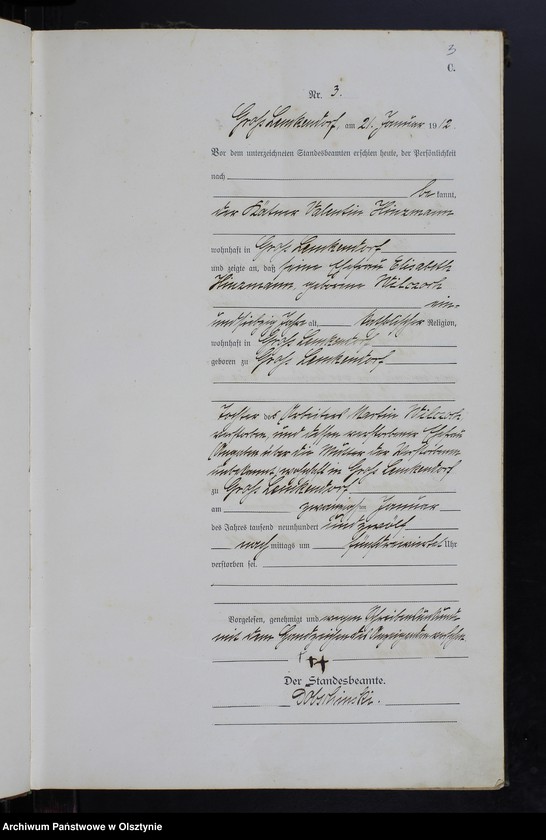 3
C.
Nr. 3.
Groß Lemkendorf, am 21. Januar 1912.
Vor dem unterzeichneten Standesbeamten erschien heute, der Persönlichkeit
nach
be kannt,
der Kätner Valentin Hinzmann
wohnhaft in Groß Lemkendorf
und zeigte an, daß seine Ehefrau Elisabeth
Hinzmann, geborene Wilczek
ein-
undsiebzig Jahre alt, katholischer Religion,
wohnhaft in Groß Lemkendorf
geboren zu Groß Lemkendorf
Tochter des Arbeiters Martin Wilczek
verstorben, und dessen verstorbener Ehefrau
Angaben über die Mutter der Verstorbenen
unbekannt, wohnhaft in Groß Lemkendorf
zu Groß Lemkendorf
am zwanzigsten Januar
des Jahres tausend neunhundert und zwölf
nach mittags um Uhr
verstorben sei.
Vorgelesen, genehmigt und wegen Schreibensunkunde
mit dem Handzeichen des Anzeigenden versehen
†††
Der Standesbeamte.
Dobschinski.
Archiwum Państwowe w Olsztynie